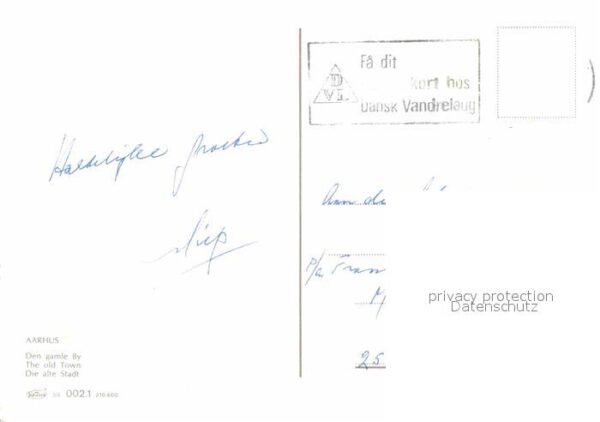 Få dit
kort hos
Dansk Vandrelaug
D
V L
Hartelijke groeten
Miep
Aan de
p/a Fran
25
privacy protection
Datenschutz
AARHUS
Den gamle By
The old Town
Die alte Stadt
002.1 210.600